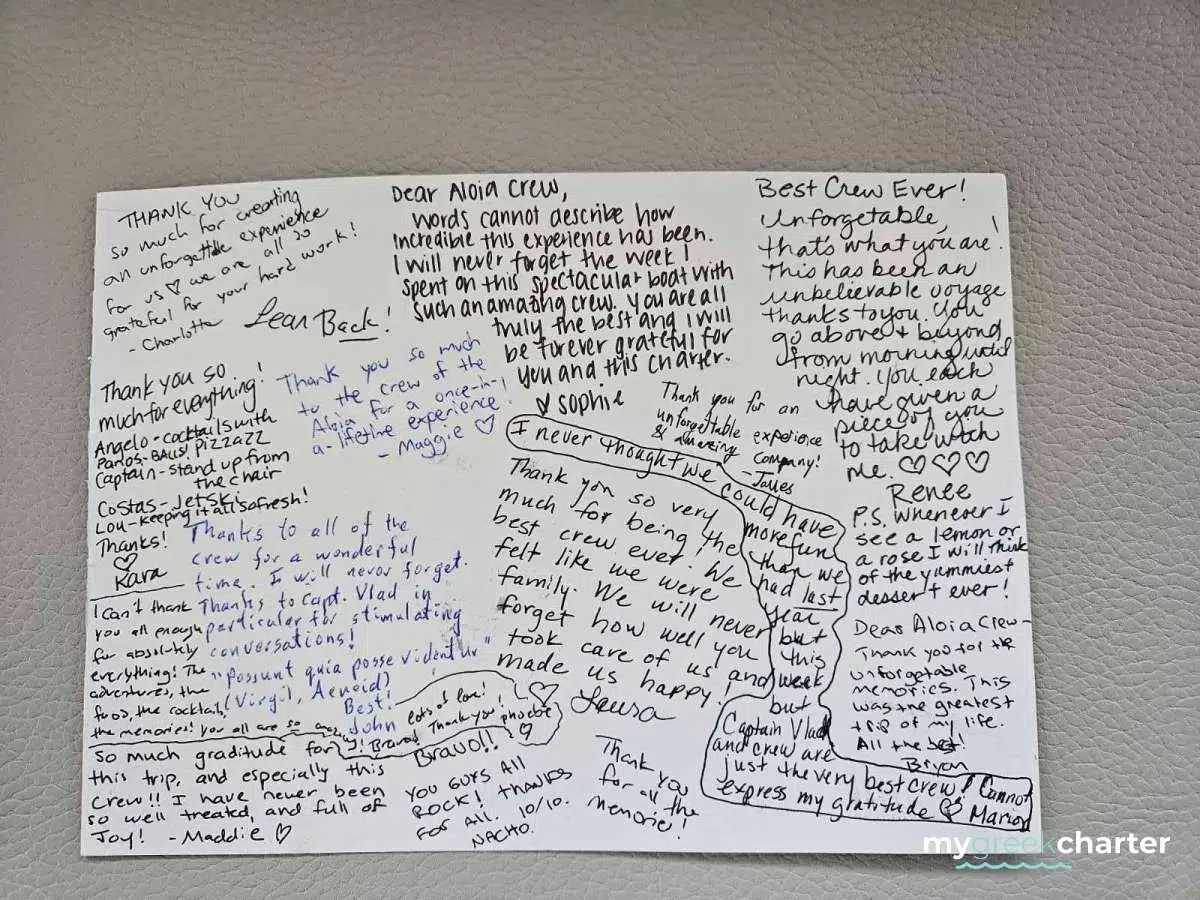 THANK YOU
so much for creating
an unforgettable experience
for us ♡ we are all so
grateful for your hard work!
- Charlotte
Lean Back!
Dear Aloia Crew,
Words cannot describe how
incredible this experience has been.
I will never forget the week I
spent on this spectacular boat with
such an amazing crew. You are all
truly the best and I will
be forever grateful for
you and this charter.
♡ sophie
Best Crew Ever!
Unforgetable,
that's what you are!
This has been an
unbelievable voyage
thanks to you. You
go above + beyond
from morning until
night. You each
have given a
piece of you
to take with
me. ♡♡♡
Renee
P.S. Whenever I
see a lemon or
a rose I will think
of the yummiest
dessert ever!
Thank you so
much for everything!
Angelo - cocktails with
Panos - BAus! pizzazz
Captain - stand up from
the chair
Costas - Jetski
Lou - keeping it all so fresh!
Thanks!
♡
Kara
Thank you so much
to the crew of the
Aloia for a once-in-
a-lifetime experience!
- Maggie ♡
Thank you for an
unforgettable experience
& amazing company!
- James
Thanks to all of the
crew for a wonderful
time. I will never forget.
Thanks to Capt. Vlad in
particular for stimulating
conversations!
"Possunt quia posse videntur"
(Virgil, Aeneid)
Best!
John
Thank you so very
much for being the
best crew ever! We
felt like we were
family. We will never
forget how well you
took care of us and
made us happy!
♡
Laura
I never thought we could have
more fun
than we
had last
year
but
this
week
but
Captain Vlad
and crew are
just the very best crew! Cannot
express my gratitude ♡ Marion
I can't thank
you all enough
for absolutely
everything! The
adventures, the
food, the cocktails,
the memories! You all are so
Bravo! Thank you!
Lots of love!
phoebe
Bravo!!
So much graditude for
this trip, and especially this
crew!! I have never been
so well treated, and full of
Joy! - Maddie ♡
YOU GUYS ALL
ROCK! THANKS
FOR ALL. 10/10.
NACHO.
Thank you
for all the
memorie!
Dear Aloia Crew -
Thank you for the
unforgetable
memories. This
was the greatest
trip of my life.
All the best!
Bryan
mygreekcharter